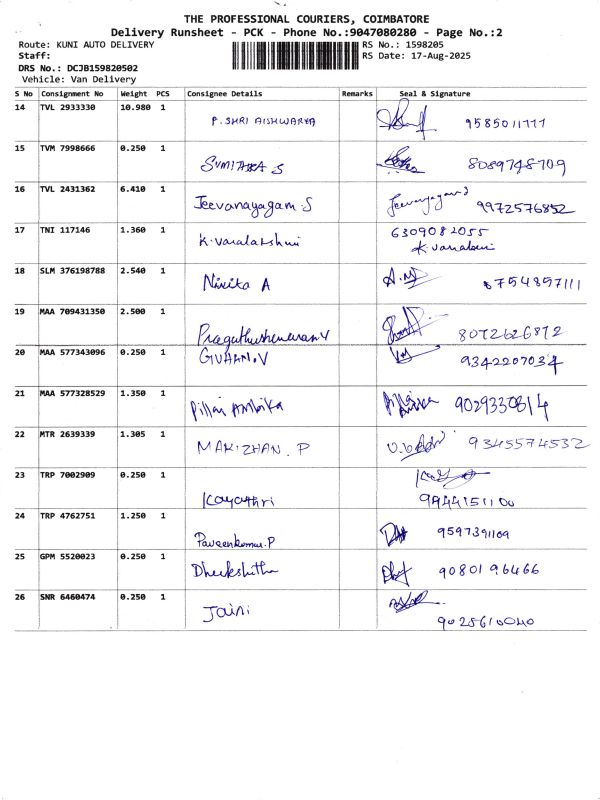 THE PROFESSIONAL COURIERS, COIMBATORE
Delivery Runsheet - PCK - Phone No.:9047080280 - Page No.:2
Route: KUNI AUTO DELIVERY RS No.: 1598205
Staff: RS Date: 17-Aug-2025
DRS No.: DCJB159820502
Vehicle: Van Delivery
S No Consignment No Weight PCS Consignee Details Remarks Seal & Signature
14 TVL 2933330 10.980 1
P. SHRI AISHWARYA 9585011777
15 TVM 7998666 0.250 1
S 8089748709
16 TVL 2431362 6.410 1
Jeevanayagam.S Jeevanayagam.S 9972576852
17 TNI 117146 1.360 1 6309082055
K.Varalakshmi
18 SLM 376198788 2.540 1
Nikita A 6754897111
19 MAA 709431350 2.500 1
8072626872
20 MAA 577343096 0.250 1
GUHAN.V 9342207034
21 MAA 577328529 1.350 1
Pillai Ambika 9029330814
22 MTR 2639339 1.305 1
MAKIZHAN. P 9345574532
23 TRP 7002909 0.250 1
9944151100
24 TRP 4762751 1.250 1
Paveenkumar.P 9597391109
25 GPM 5520023 0.250 1
Dheekshitha 9080196466
26 SNR 6460474 0.250 1
Jaini 9028610040